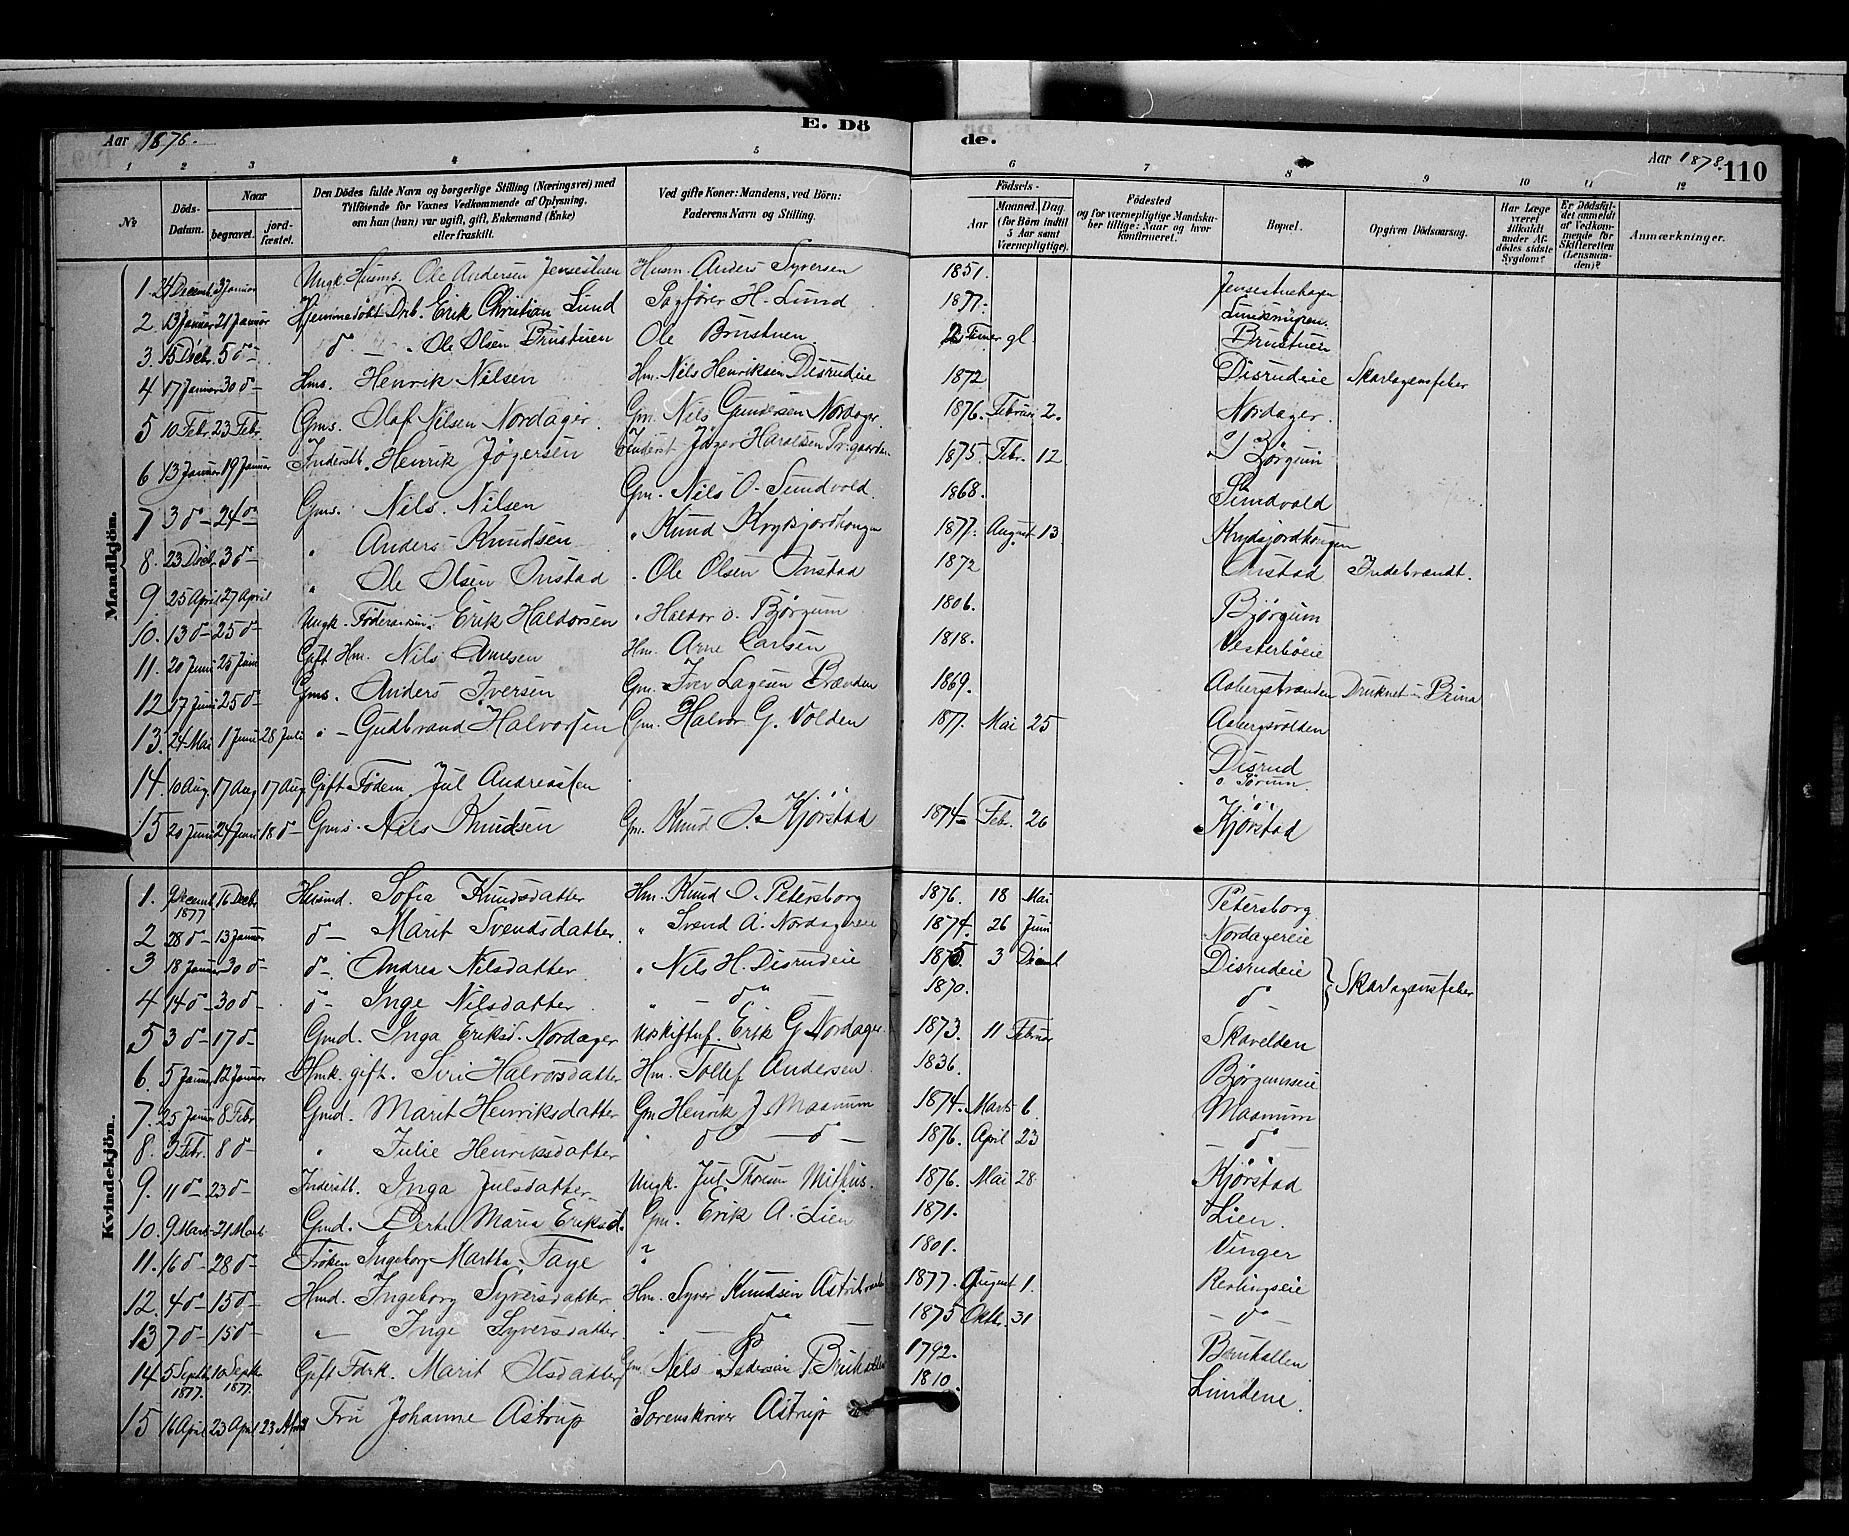 Aar 1878.
E. Dö
de.
Aar 1878.
110
1 2 3 4 5 6 7 8 9 10 11 12
No
Döds-Datum.
Naar
begravet.
jord-fæstet.
Den Dödes fulde Navn og borgerlige Stilling (Næringsvei) med
Tilföiende for Voxnes Vedkommende af Oplysning,
om han (hun) var ugift, gift, Enkemand (Enke)
eller fraskilt.
Ved gifte Koner: Mandens, ved Börn:
Faderens Navn og Stilling.
Födsels-
Aar
Maaned. Dag.
(for Börn indtil
5 Aar samt
Værnepligtige).
Födested
og for værnepligtige Mandsku-
ber tillige: Naar og hvor
Konfirmeret.
Bopæl.
Opgiven Dödsaarsag.
Har Læge
været
tilkaldt
under Af-
dödes sidste
Sygdom?
Er Dödsfal-
det anmeldt
af Vedkom-
mende for
Skifteretten
(Lensman-
den)?
Anmærkninger.
Mandkjön.
1. 24 Decemb. 3 Januar Ungk. Husms. Ole Andersen Jensestuen Husm. Anders Syversen 1851. Jensestuehagen
2. 13 Januar 21 Januar Hjemmedøbt Drb. Erik Christian Lund Sagfører H. Lund 1877.
3. 15 Decbr. 5 do Ole Olsen Brustuen Ole Brustuen 2 Timer gl. Brustuen
4 17 Januar 30 do Hms. Henrik Nilsen Hm. Nils Henriksen Disrudeie 1872 Disrudeie Skarlagensfeber
5 10 Febr. 23 Febr. Gms. Olaf Nilsen Nordager. Gm. Nils Gundersen Nordager 1876. Februar 2. Nordager.
6 13 Januar 19 Januar Inderstb. Henrik Jøgersen Inderst Jøger Haraldsen 1875. Febr. 12 Børgum
7 3 do 24 do Gms. Nils Nilsen Gm. Nils O. Sundvold. 1868. Sundvold
8. 23 Decb. 3 do " Anders Knudsen " Knud 1877. August 13
9 25 April 27 April " Ole Olsen Onstad " Ole Olsen Onstad 1872 Onstad
10. 13 do 25 do Ungk. Erik Haldorsen " Haldor O. Bjørgum 1806. Bjørgum
11. 20 Juni 25 Juni Gift Hm. Nils Arnesen Hm. Arne Carlsen 1818.
12 17 Juni 25 do Gms. Anders Iversen Gm. Iver Lagesen Brænden 1869. Aabergsbrænden Druknet i
13. 24 Mai 1 Juni 28 Juli " Gudbrand Halvorsen Gm. Halvor G. Volden 1877. Mai 25 Aabergsvolden
14. 10 Aug. 17 Aug 17 Aug. Gift Fødem. Jul Andreassen Disrud
o. Sørum.
15 20 Juni 24 Juni 18 do Gms. Nils Knudsen Gm. Knud O. Kjørstad 1874 Febr. 26 Kjørstad
Kvindekjön.
1. 9 Decemb. 1877 16 Decbr. Husmd. Sofia Knudsdatter Hm. Knud O. Petersborg 1876. 18 Mai Petersborg.
2 28 do 13 Januar do Marit Svendsdatter. " Svend A. Nordagereie 1874. 26 Juni Nordagereie
3 18 Januar 30 do do Andrea Nilsdatter " Nils H. Disrudeie 1875. 3 Disrudeie Skarlagensfeber
4 14 do 30 do do Inge Nilsdatter. " do 1870. do
5 3 do 17 do Gmd. Inga Eriksd. Nordager Erik G. Nordager 1873. 11 Februar Skavelden
6. 5 Januar 12 Januar Hmk. gift. Siri Halvorsdatter Hm. Tollef Andersen. 1836. Bjørgumseie
7. 25 Januar 8 Febr Gmd. Marit Henriksdatter Gm Henrik J. Maanum 1874. Marts 6. Maanum
8. 3 Febr. 8 do " Julie Henriksdatter " do do 1876. April 23 do
9. 11 do 23 do Inderstb. Inga Julsdatter Ungk. Jul 1876. Mai 28 Kjørstad
10. 9 Mart 21 Mart. Gmd. Berte Maria Eriksd. Gm. Erik A. Lien 1871. Lien.
11. 16 do 28 do Frøken Ingeborg Martha Faye " 1801. Vinger
12. 4 do 15 do Hmd. Ingeborg Syversdatter Hm. Syver Knudsen 1877. August 1.
13 7 do 15 do " Inge Syversdatter. " do 1875 Oktbr. 31 do
14 5 Septbr. 1877. 10 Septbr. 1877. Gift Marit Olsdatter Gm. Nels Pedersen 1792.
15 16 April 23 April 23 April Fru Johanne Astrup Sorenskriver Astrup 1810. Lundene.